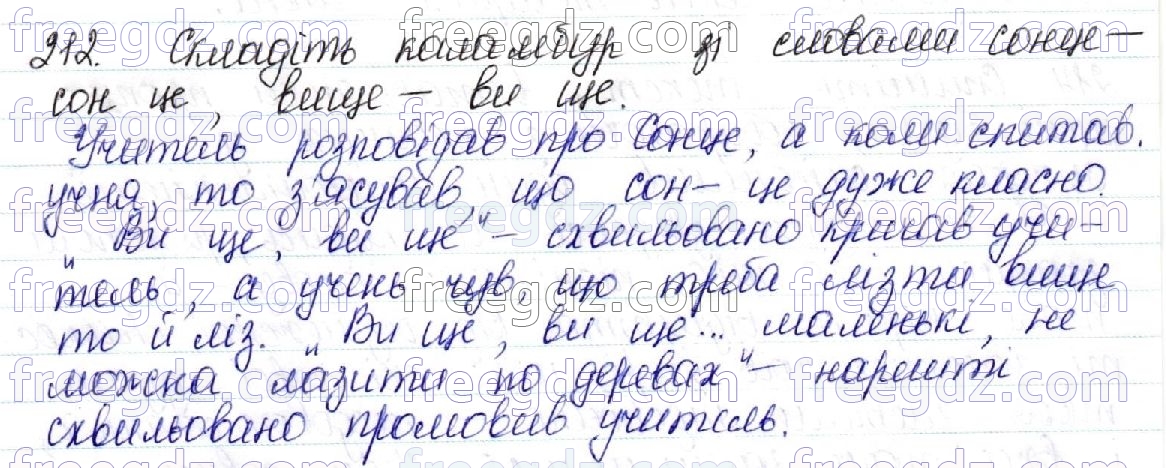 212. Складіть каламбур зі словами сонце –
сон це, вище – ви ще.
Учитель розповідав про Сонце, а коли спитав
учня, то з'ясував, що сон – це дуже класно.
"Ви ще, ви ще" – схвильовано кричав учи-
тель, а учень чув, що треба лізти вище
то й ліз. "Ви ще, ви ще... маленькі, не
можна лазити по деревах" – нарешті
схвильовано промовив учитель.
freegdz.com